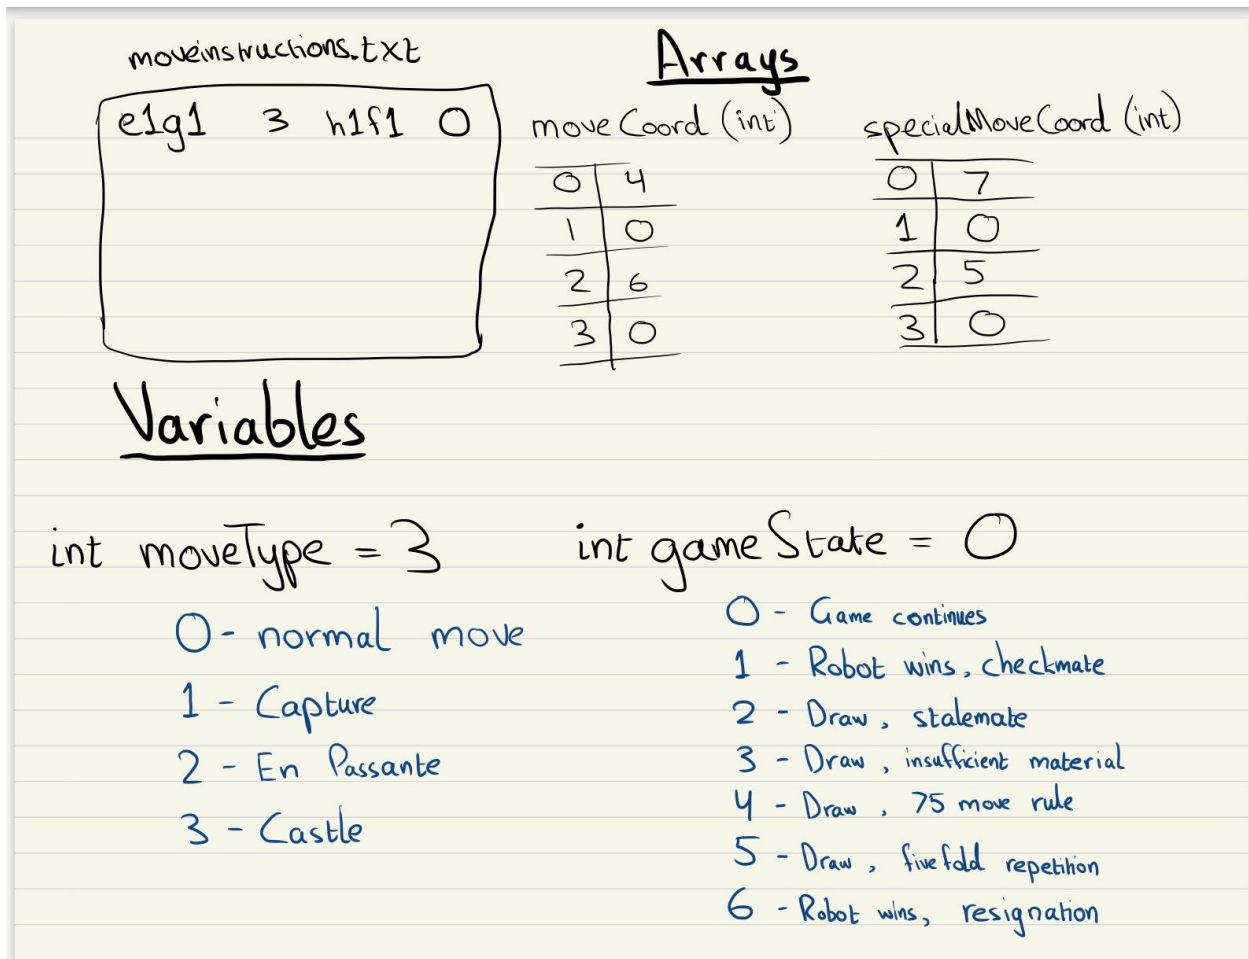 moveinstructions.txt
e1g1 3 h1f1 0
Arrays
moveCoord (int)
0 4
1 0
2 6
3 0
specialMoveCoord (int)
0 7
1 0
2 5
3 0
Variables
int moveType = 3
0 - normal move
1 - Capture
2 - En Passante
3 - Castle
int gameState = 0
0 - Game continues
1 - Robot wins, checkmate
2 - Draw, stalemate
3 - Draw, insufficient material
4 - Draw, 75 move rule
5 - Draw, five fold repetition
6 - Robot wins, resignation